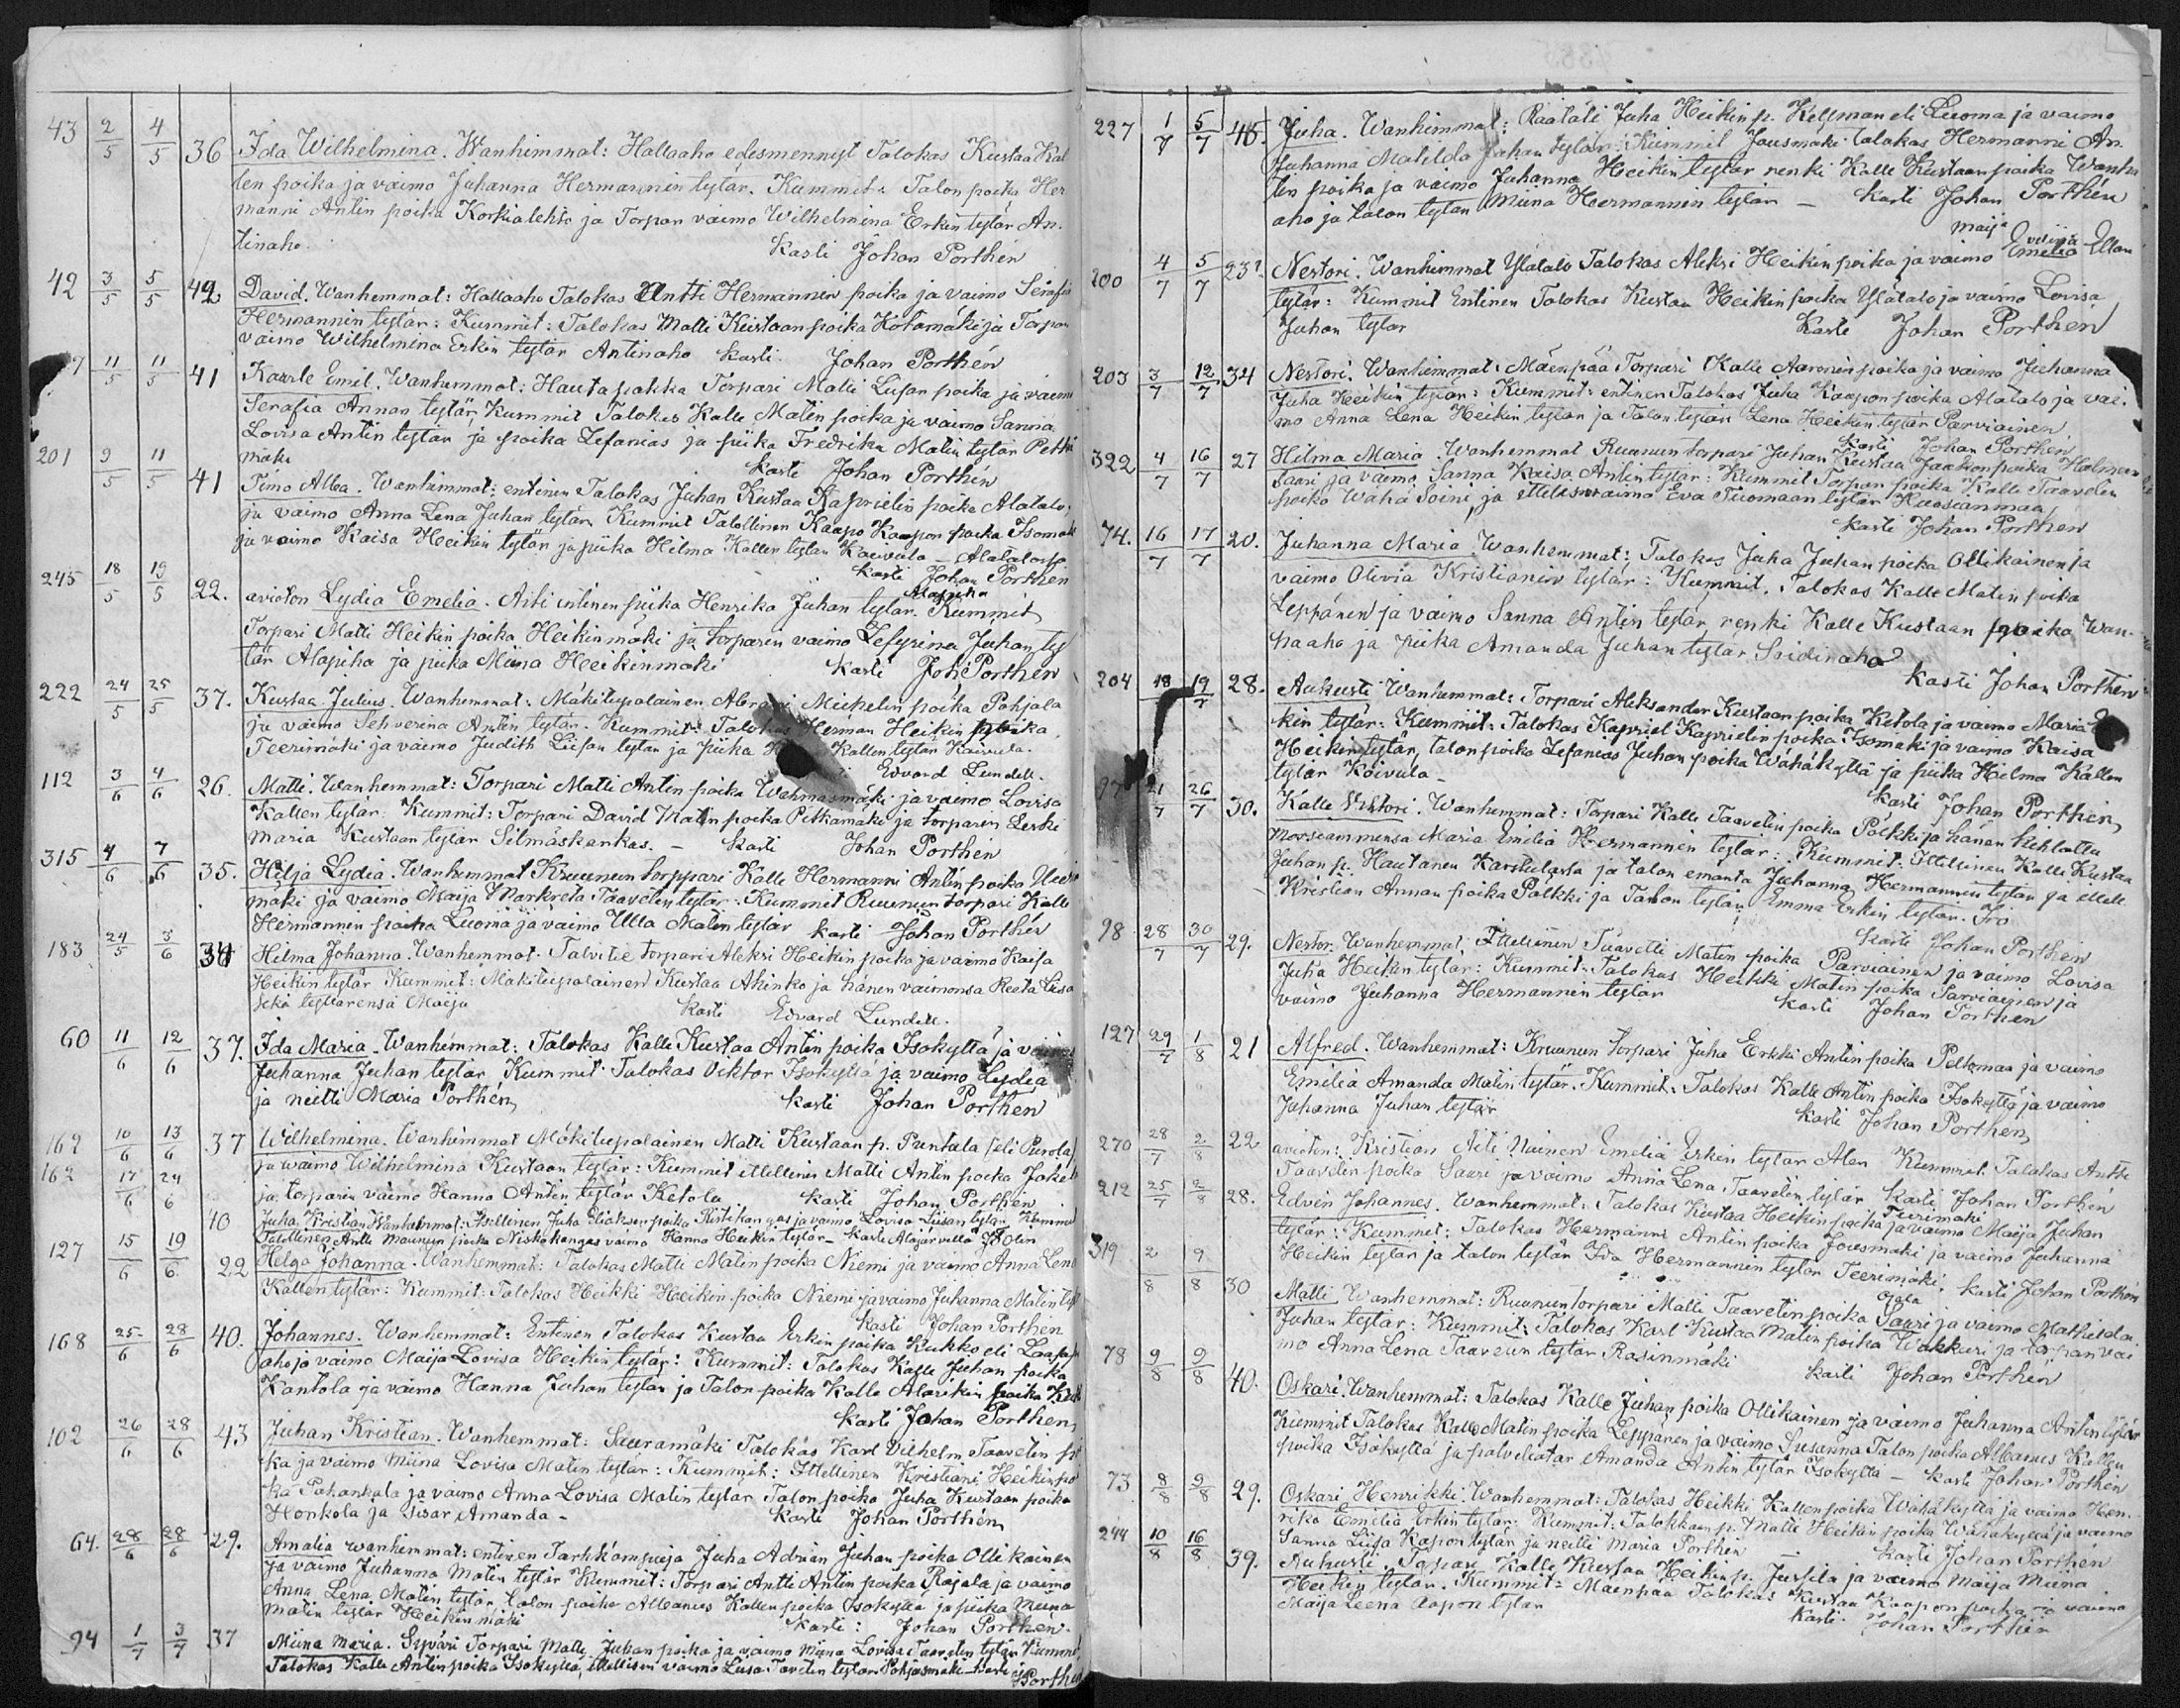 43 2/5 4/5 36 Ida Wilhelmina. Wanhimmat: Hallaaho edesmennyt Talokas Kustaa Kal
len poika ja vaimo Juhanna Hermannin tytär. Kummit: Talon poika Her
manni Antin poika Korkialehto ja Torpan vaimo Wilhelmina Erkin tytär An.
tinaho. Kasti Johan Porthén
42 3/5 5/5 42 David. Wanhemmat: Hallaaho Talokas Antti Hermannin poika ja vaimo Serafia
Hermannin tytär: Kummit: Talokas Matti Kustaan poika Kotamäki ja Torpan
vaimo Wilhelmina Erkin tytär Antinaho Kasti Johan Porthén
11/5 11/5 41 Kaarle Emil. Wanhimmat: Hautapakka Torpari Matti Liisan poika ja vaimo
Serafia Annan tytär, Kummit Talokas Kalle Matin poika ja vaimo Sanna
Lovisa Antin tytär ja poika Zefanias ja piika Fredrika Matin tytär
mäki Kasti Johan Porthén
201 9/5 11/5 41 Timo Alba. Wanhimmat: entinen Talokas Juhan Kustaa Kaprielin poika Alatalo,
ja vaimo Anna Lena Juhan tytär Kummit Talollinen Kaapo Kaapon poika Isomäki
ja vaimo Kaisa Heikin tytär ja piika Hilma Kallen tytär Koivula - Alatalosta
Kasti Johan Porthén
245 18/5 19/5 22. avioton Lydia Emelia. Äiti entinen piika Henrika Juhan tytär Alapiha Kummit
Torpari Matti Heikin poika Heikinmäki ja torparin vaimo Zefyrina Juhan ty
tär Alapiha ja piika Miina Heikinmäki Kasti Joh Porthén
222 24/5 25/5 37. Kustaa Julius. Wanhemmat: Mäkitupalainen Abra Mikkelin poika Pohjala
ja vaimo Sehverina Antin tytär. Kummit: Talokas Herman Heikin poika
Teerimäki ja vaimo Judith Liisan tytär ja piika Kallen tytär Kaivula.
Edvard Lundell.
112 3/6 4/6 26. Matti. Wanhemmat: Torpari Matti Antin poika Wahmasmäki ja vaimo Lovisa
Kallen tytär. Kummit: Torpari David Matin poika Pitkämäki ja torparin Leski
Maria Kustaan tytär Silmäskenkas. - Kasti Johan Porthén
315 4/6 7/6 35. Hilja Lydia. Wanhemmat Kruunun torppari Kalle Hermanni Antin poika
mäki ja vaimo Maija Markreta Taavetin tytär. Kummit Ruunun torpari Kalle
Hermannin poika Luoma ja vaimo Ulla Matin tytär Kasti Johan Porthén
183 24/5 3/6 34 Hilma Johanna. Wanhemmat. Talvitie torpari Aleksi Heikin poika ja vaimo Kaisa
Heikin tytär Kummit: Mäkitupalainen Kustaa Ahinko ja hänen vaimonsa Reeta Liisa
sekä tyttärensä Maija Kasti Edvard Lundell.
60 11/6 12/6 37. Ida Maria. Wanhimmat: Talokas Kalle Kustaa Antin poika Isokyttä ja vaimo
Juhanna Juhan tytär Kummit Talokas Viktor Isokyttä ja vaimo Lydia
ja neitti Maria Porthén, Kasti Johan Porthén
162 10/6 13/6 37 Wilhelmina. Wanhimmat Mäkitupalainen Matti Kustaan p. Puntala (eli Purola)
162 17/6 24/6 ja vaimo Wilhelmina Kustaan tytär: Kummit itellinen Matti Antin poika
ja torparin vaimo Hanna Antin tytär Ketola Kasti Johan Porthén
40 Juha Kristian Wanhemmat: Itsellinen Juha Eliaksen poika Ristikangas ja vaimo Lovisa Liisan tytär Kummit
Talollinen Antti Maunun poika Niskakangas vaimo Hanna Heikin tytär - Kasti Alajärvellä J Olin
127 15/6 19/6 22 Helga Johanna. Wanhemmat: Talokas Matti Matin poika Niemi ja vaimo Anna Lena
Kallen tytär: Kummit: Talokas Heikki Heikin poika Niemi ja vaimo Juhanna Matin tytär
Kasti Johan Porthén
168 25/6 28/6 40. Johannes. Wanhemmat: Entinen Talokas Kustaa Erkin poika Kukko eli
aho ja vaimo Maija Lovisa Heikin tytär: Kummit: Talokas Kalle Juhan poika
Kantola ja vaimo Hanna Juhan tytär ja Talon poika Kalle poika
Kasti Johan Porthén,
102 26/6 28/6 43 Juhan Kristian. Wanhemmat: Sauramäki Talokas Karl Vilhelm Taavetin poi
ka ja vaimo Miina Lovisa Matin tytär: Kummit: Itsellinen Kristiani Heikin poi
ka Pahankala ja vaimo Anna Lovisa Matin tytär Talon poika Juha Kustaan poika
Honkola ja sisar Amanda - Kasti Johan Porthén
64. 28/6 28/6 29. Amalia wanhimmat: entinen Juha Adrian Juhan poika Ollikainen
ja vaimo Juhanna Matin tytär Kummit: Torpari Antti Antin poika Rajala ja vaimo
Anna Lena Matin tytär talon poika Albanus Kallen poika Isokyttä ja piika Miina
Matin tytär Heikinmäki Kasti: Johan Porthén.
94 1/7 3/7 37 Miina Maria. Syväri Torpari Matti Juhan poika ja vaimo Miina Lovisa Taavetin tytär Kummit,
Talokas Kalle Antin poika Isokyttä, itellisen vaimo Liisa Tavetin tytär Pohjasmäki Kasti J Porthén
227 1/7 5/7 45. Juha. Wanhimmat: Räätäli Juha Heikin p. Kellman eli Luoma ja vaimo
Juhanna Matilda Juhan tytär: Kummit Jousmäki talokas Hermanni An-
tin poika ja vaimo Juhanna Heikin tytär renki Kalle Kustaan poika Wanha
aho ja talon tytär Miina Hermannin tytär - Kasti Johan Porthén
Maija Evelina
200 4/7 5/7 23. Nestori. Wanhimmat Ylätalo Talokas Aleksi Heikin poika ja vaimo Emelia Ellan
tytär: Kummit Entinen Talokas Kustaa Heikin poika Ylätalo ja vaimo Lovisa
Juhan tytär Kasti Johan Porthén
203 3/7 12/7 34 Nestori. Wanhimmat: Mäenpää Torpari Kalle Aaronin poika ja vaimo Juhanna
Juha Heikin tytär: Kummit: entinen Talokas Juha Kaapon poika Alatalo ja vai-
mo Anna Lena Heikin tytär ja Talon tytär Lena Heikin tytär Parviainen
Kasti Johan Porthén
322 4/7 16/7 27 Hilma Maria. Wanhemmat Ruunun torpari Juhan Kustaa Jaakon poika Holmen
Saari ja vaimo Sanna Kaisa Antin tytär: Kummit Torpan poika Kalle Taavetin
poika Wähä Soini, ja itellisvaimo Eva Tuomaan tytär Huosianmaa,
Kasti Johan Porthén
74. 16/7 17/7 20. Juhanna Maria. Wanhemmat: Talokas Juha Juhan poika Ollikainen ja
vaimo Olivia Kristianin tytär: Kummit. Talokas Kalle Matin poika
Leppänen ja vaimo Sanna Antin tytär renki Kalle Kustaan poika Wan-
haaho ja piika Amanda Juhan tytär
Kasti Johan Porthén
204 18/7 19/7 28. Aukusti Wanhemmat: Torpari Aleksander Kustaan poika Ketola ja vaimo Maria
kin tytär: Kummit: Talokas Kapriel Kaprielin poika Isomäki ja vaimo Kaisa
Heikin tytär, talon poika Zefanias Juhan poika Wähäkyttä ja piika Hilma Kallen
tytär Koivula - Kasti Johan Porthén,
97 21/7 26/7 30. Kalle Viktori. Wanhemmat: Torpari Kalle Taavetin poika Pölkki ja hänen kihlattu
morsiammensa Maria Emelia Hermannin tytär: Kummit. Itellinen Kalle Kustaa
Juhan p. Hautanen Karstulasta ja talon emäntä Juhanna Hermannin tytär ja itell.
Kristian Annan poika Pölkki ja Talon tytär Emma Erkin tytär Iro
Kasti Johan Porthén
98 28/7 30/7 29. Nestor. Wanhemmat: Itellinen Taavetti Matin poika Parviainen ja vaimo Lovisa
Juha Heikin tytär: Kummit: Talokas Heikki Matin poika Parviainen ja
vaimo Juhanna Hermannin tytär Kasti Johan Porthén
127 29/7 1/8 21 Alfred. Wanhemmat: Kruunun torpari Juha Erkki Antin poika Peltomaa ja vaimo
Emelia Amanda Matin tytär. Kummit: Talokas Kalle Antin poika Isokyttä ja vaimo
Johanna Juhan tytär Kasti Johan Porthén,
270 28/7 2/8 22 avioton: Kristian Äiti Nainen Emelia Erkin tytär Alen Kummit. Talokas Antti
Taavetin poika Saari ja vaimo Anna Lena Taavetin tytär Kasti Johan Porthén
212 25/7 2/8 28. Edvin Johannes. Wanhemmat: Talokas Kustaa Heikin poika Teerimäki ja vaimo Maija Juhan
tytär: Kummit: Talokas Hermanni Antin poika Jousmäki ja vaimo Juhanna
Heikin tytär ja talon tytär Ida Hermannin tytär Teerimäki: Kasti Johan Porthén
319 2/8 9/8 30 Matti Wanhemmat: Ruunun torpari Matti Taavetin poika Ojala Saari ja vaimo Mathilda
Juhan tytär: Kummit: Talokas Karl Kustaa Matin poika Wakkuri ja torpan vai
mo Anna Lena Taavetin tytär Rasinmäki Kasti Johan Porthén
78 9/8 9/8 40. Oskari. Wanhemmat: Talokas Kalle Juhan poika Ollikainen ja vaimo Juhanna Antin tytär
Kummit Talokas Kalle Matin poika Leppänen ja vaimo Susanna Talon poika Albanus Kallen
poika Isokyttä ja palveliatar Amanda Antin tytär Isokyttä - Kasti Johan Porthén
73 8/8 9/8 29. Oskari Henrikki. Wanhemmat: Talokas Heikki Kallen poika Wähäkyttä ja vaimo Hen-
rika Emelia Erkin tytär: Kummit: Talokkaan p. Matti Heikin poika Wähäkyttä ja vaimo
Sanna Liisa Kaapon tytär ja neitti Maria Porthén - Kasti Johan Porthén
244 10/8 16/8 39. Aukusti. Torpari Kalle Kustaa Heikin p. Jussila ja vaimo Maija Miina
Heikin tytär. Kummit: Mäenpää Talokas Kustaa Kaapon poika ja vaimo
Maija Leena Aapon tytär Kasti. Johan Porthén